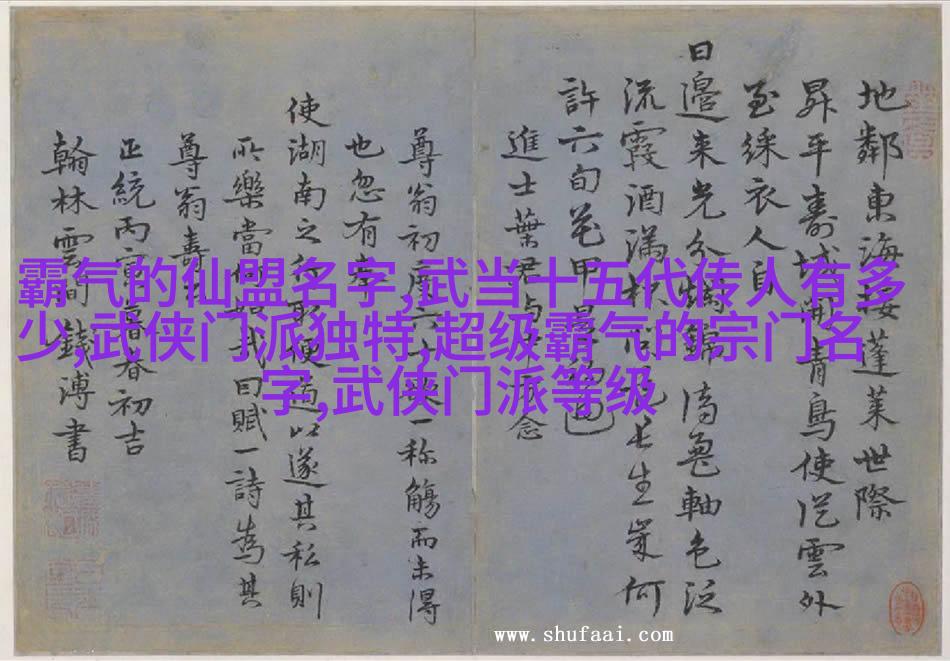 地鄰東海接蓬萊世際
昇平壽域開青鳥使從雲外
至綵衣人自
日邊來光分錦軸色泛
流霞酒滿杯問長生何
許六旬花甲
進士葉君念
尊翁初度六十矣一称觴而未得
也忽有奉
使湖南之行取便過以遂其私則
所樂當何如哉因賦一詩為其
尊翁壽
正統丙寅暮春初吉
翰林雲間錢溥書
霸气的仙盟名字,武当十五代传人有多
少,武侠门派独特,超级霸气的宗门名
字,武侠门派等级
www.shufaai.com